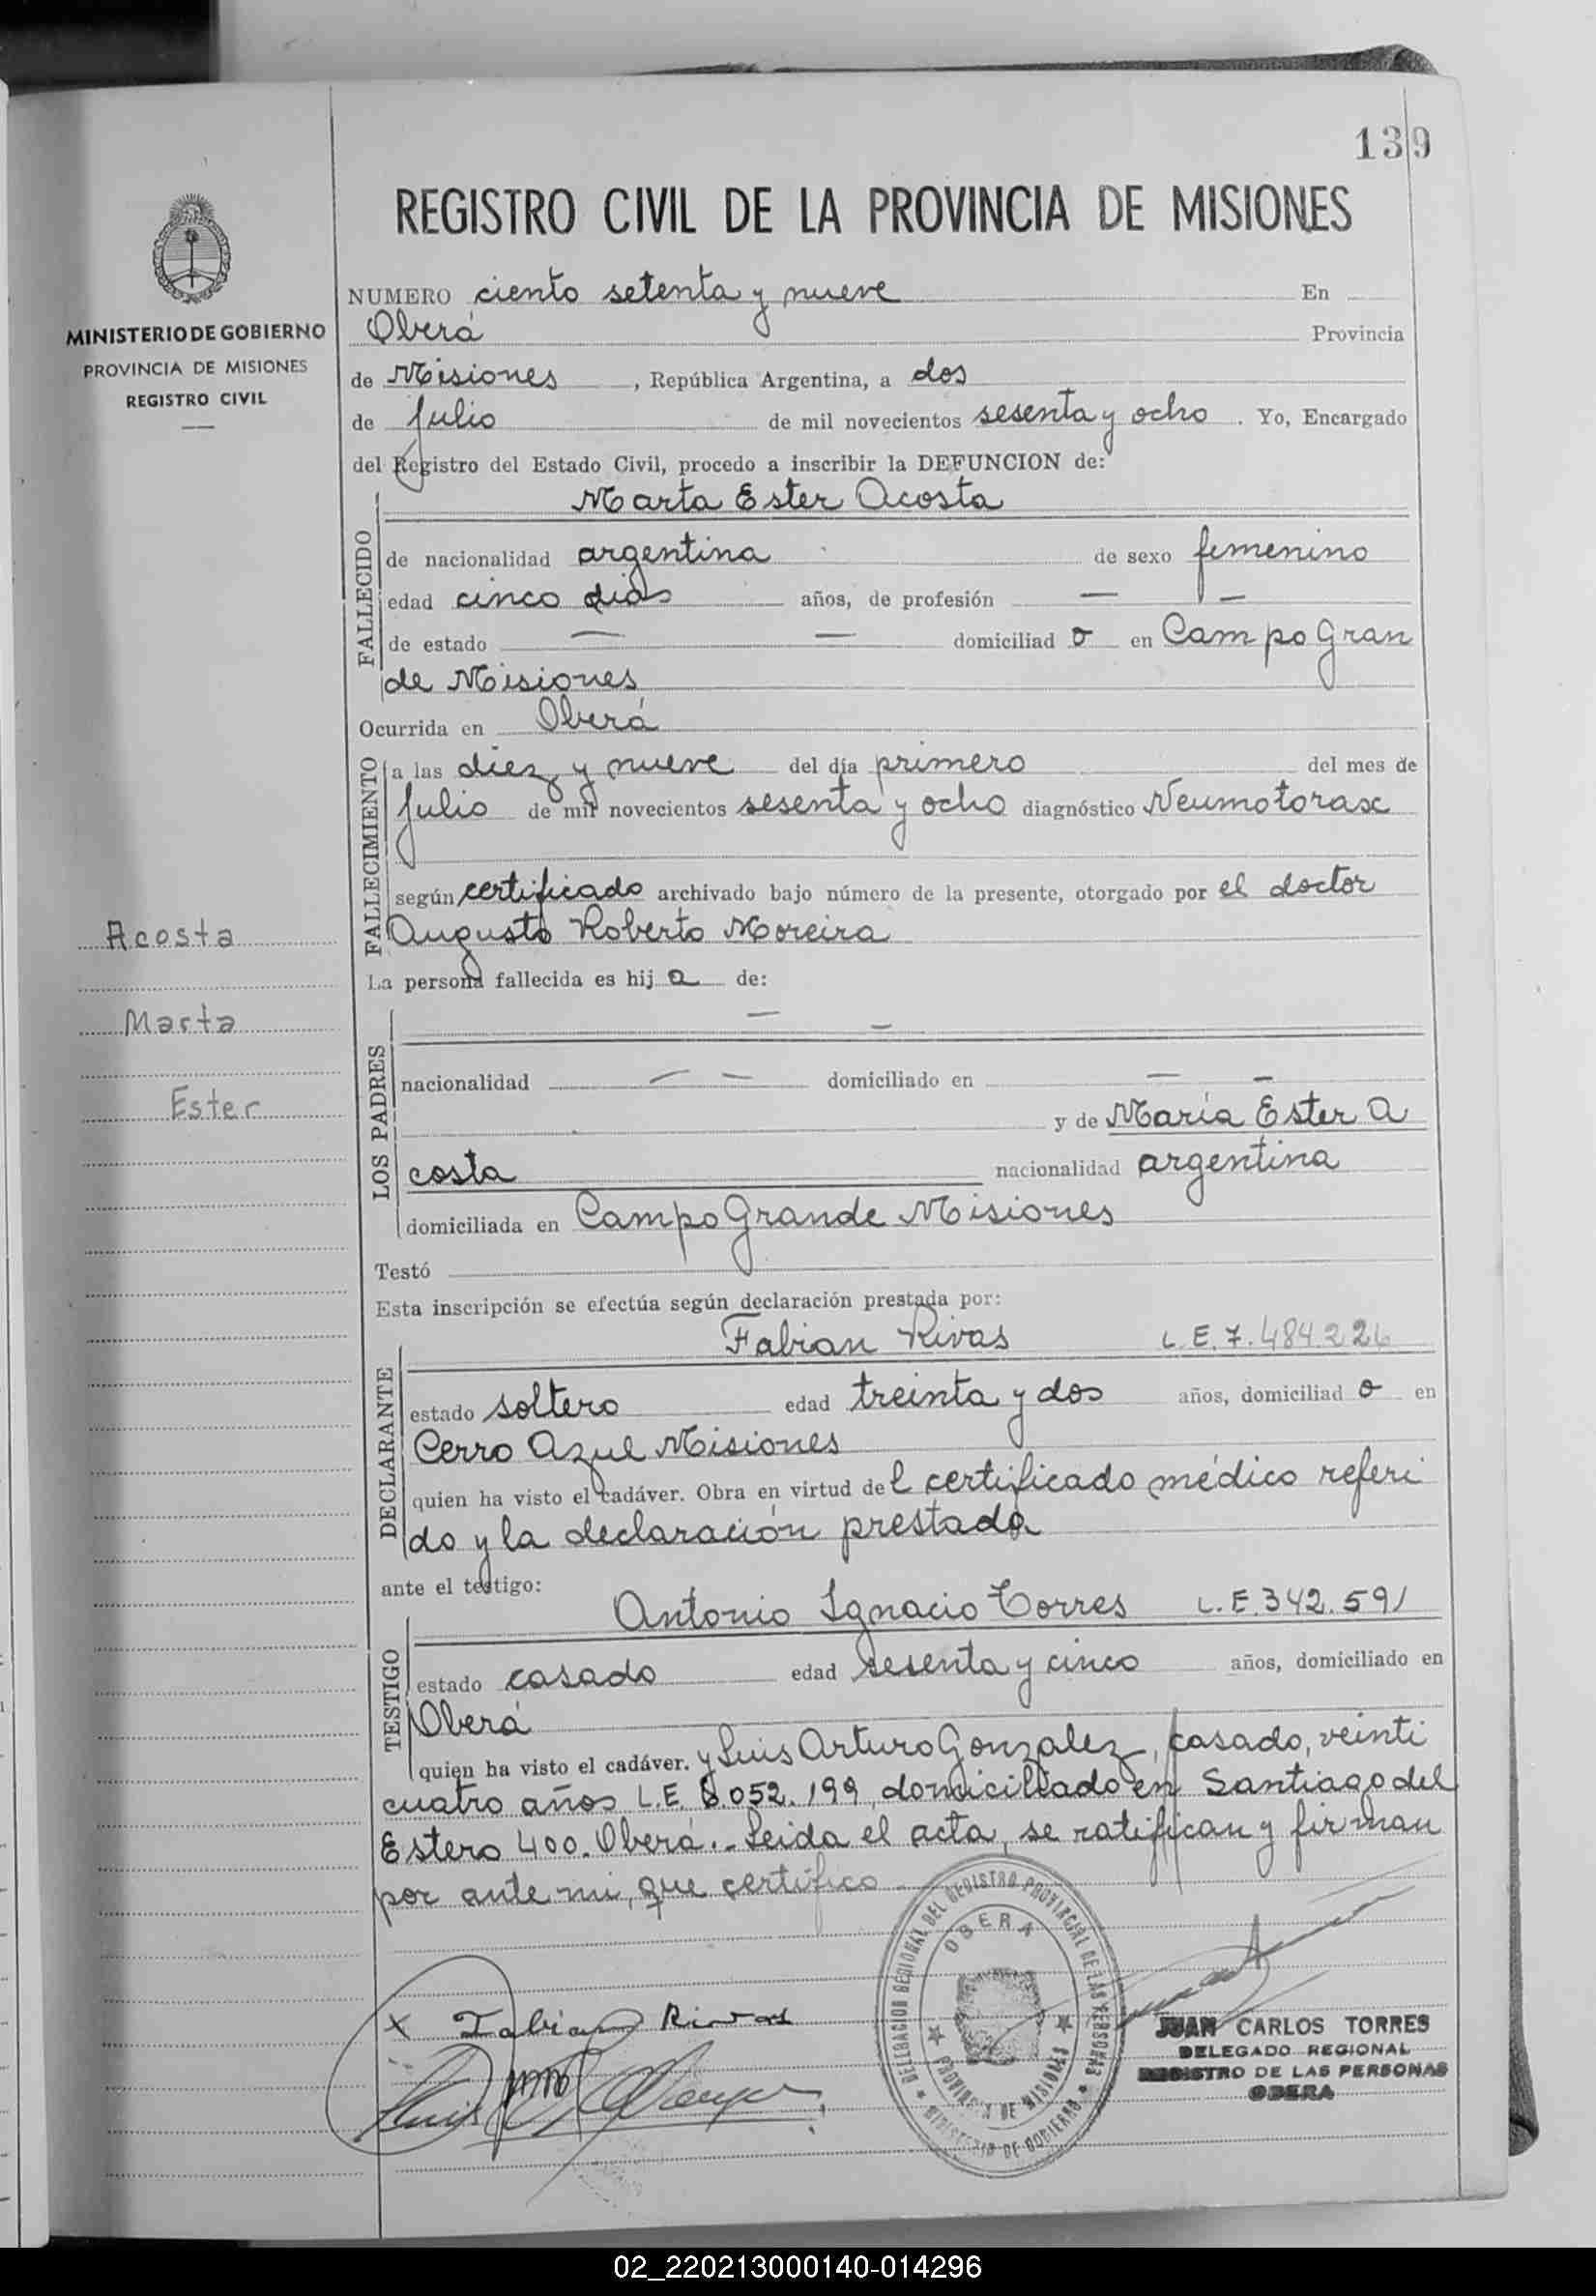 139
REGISTRO CIVIL DE LA PROVINCIA DE MISIONES
MINISTERIO DE GOBIERNO
PROVINCIA DE MISIONES
REGISTRO CIVIL
NUMERO ciento setenta y nueve En
Oberá Provincia
de Misiones, República Argentina, a dos
de Julio de mil novecientos sesenta y ocho. Yo, Encargado
del Registro del Estado Civil, procedo a inscribir la DEFUNCION de:
FALLECIDO
Marta Ester Acosta
de nacionalidad argentina de sexo femenino
edad cinco dias años, de profesión — —
de estado — — domiciliad o en Campo Gran
de Misiones
Ocurrida en Oberá
FALLECIMIENTO
a las diez y nueve del día primero del mes de
Julio de mil novecientos sesenta y ocho diagnóstico Neumotorax
según certificado archivado bajo número de la presente, otorgado por el doctor
Augusto Roberto Moreira
Acosta
Marta
Ester
La persona fallecida es hij a de:
LOS PADRES
— —
nacionalidad — — domiciliado en — —
y de María Ester A
costa nacionalidad argentina
domiciliada en Campo Grande Misiones
Testó
Esta inscripción se efectúa según declaración prestada por:
DECLARANTE
Fabian Rivas L.E. 7.484.226
estado soltero edad treinta y dos años, domiciliad o en
Cerro Azul Misiones
quien ha visto el cadáver. Obra en virtud del certificado médico referi
do y la declaración prestada
ante el testigo:
TESTIGO
Antonio Ignacio Torres L.E. 342.591
estado casado edad sesenta y cinco años, domiciliado en
Oberá
quien ha visto el cadáver. y Luis Arturo Gonzalez, casado, veinti
cuatro años L.E. 8.052.199, domiciliado en Santiago del
Estero 400. Oberá.- Leida el acta, se ratifican y firman
por ante mi, que certifico
DELEGACION REGIONAL DEL REGISTRO PROVINCIAL DE LAS PERSONAS
OBERA
PROVINCIA DE MISIONES
MINISTERIO DE GOBIERNO
x Fabian Rivas
Luis
JUAN CARLOS TORRES
DELEGADO REGIONAL
REGISTRO DE LAS PERSONAS
OBERA
02_220213000140-014296